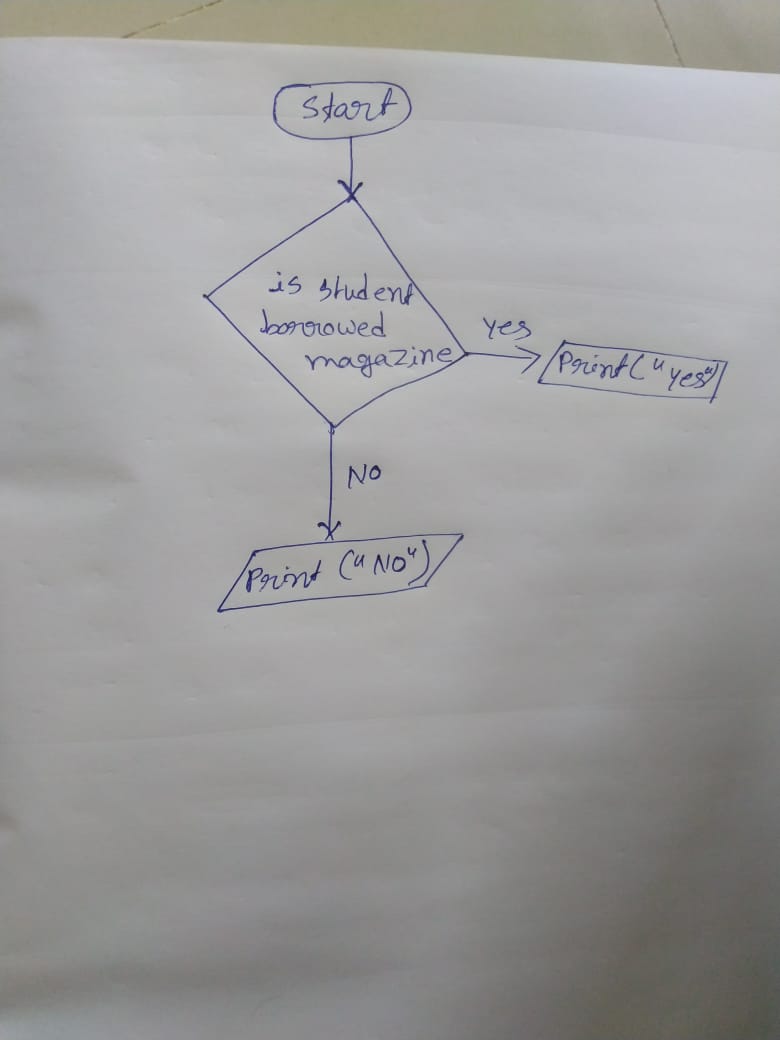 Start
is student
borrowed
magazine
yes
Print("yes")
NO
Print ("NO")